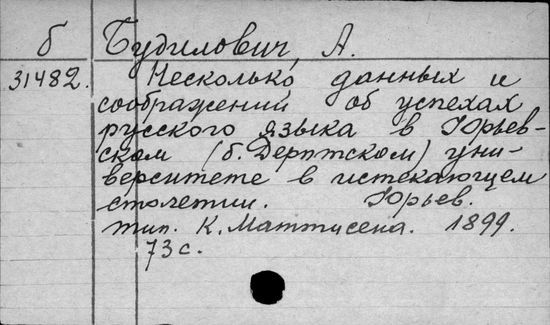 б Будилович, А.
31482. Несколько данных и
соображений об успехах
русского языка в Юрьев-
ском (б. Дерптском) уни-
верситете в истекающем
столетии. Юрьев.
тип. К. Маттисена. 1899.
73 с.